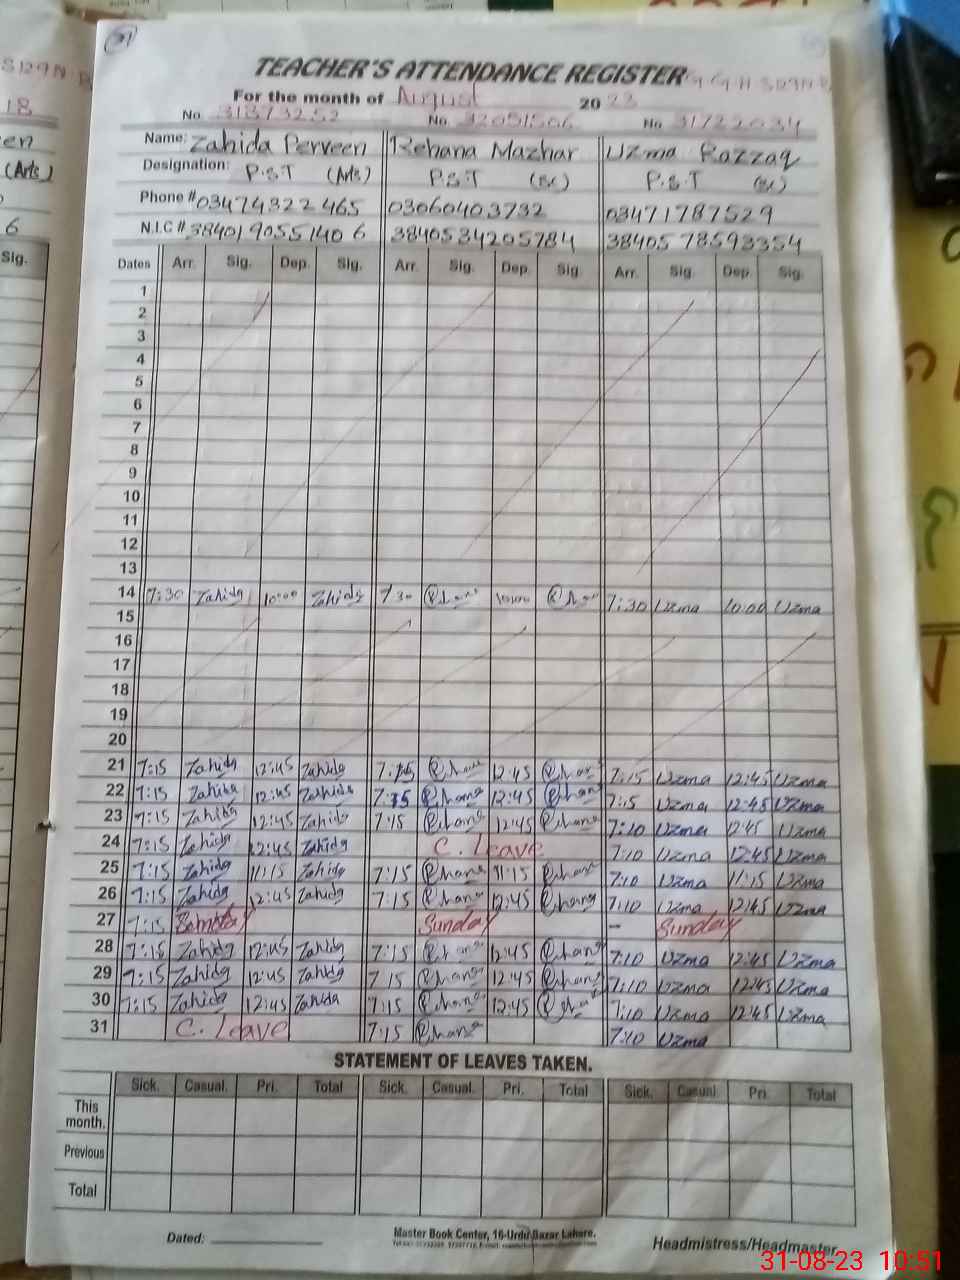 31
TEACHER'S ATTENDANCE REGISTER G G H S 129 N B
For the month of August 2023
No 31373252 No. 32051506 No. 31722034
Name: Zahida Perveen Rehana Mazhar Uzma Razzaq
Designation: P.S.T (Arts) P.S.T (Sc) P.S.T (Sc)
Phone # 03474322465 03060403732 03471787529
N.I.C # 3840190551406 3840534205784 3840578593354
Dates Arr. Sig. Dep. Sig. Arr. Sig. Dep. Sig. Arr. Sig. Dep. Sig.
1
2
3
4
5
6
7
8
9
10
11
12
13
14 7:30 Zahida 10:00 Zahida 7:30 Rhana 10:00 Rhana 7:30 Uzma 10:00 Uzma
15
16
17
18
19
20
21 7:15 Zahida 12:45 Zahida 7:15 Rhana 12:45 Rhana 7:15 Uzma 12:45 Uzma
22 7:15 Zahida 12:45 Zahida 7:15 Rhana 12:45 Rhana 7:15 Uzma 12:45 Uzma
23 7:15 Zahida 12:45 Zahida 7:15 Rhana 12:45 Rhana 7:10 Uzma 12:45 Uzma
24 7:15 Zahida 12:45 Zahida C. Leave 7:10 Uzma 12:45 Uzma
25 7:15 Zahida 11:15 Zahida 7:15 Rhana 11:15 Rhana 7:10 Uzma 11:15 Uzma
26 7:15 Zahida 12:45 Zahida 7:15 Rhana 12:45 Rhana 7:10 Uzma 12:45 Uzma
27 7:15 Sunday Sunday - Sunday
28 7:15 Zahida 12:45 Zahida 7:15 Rhana 12:45 Rhana 7:10 Uzma 12:45 Uzma
29 7:15 Zahida 12:45 Zahida 7:15 Rhana 12:45 Rhana 7:10 Uzma 12:45 Uzma
30 7:15 Zahida 12:45 Zahida 7:15 Rhana 12:45 Rhana 7:10 Uzma 12:45 Uzma
31 C. Leave 7:15 Rhana 7:10 Uzma
STATEMENT OF LEAVES TAKEN.
Sick. Casual. Pri. Total Sick. Casual. Pri. Total Sick. Casual. Pri. Total
This month.
Previous
Total
Dated:
Master Book Center, 16-Urdu Bazar Lahore.
Headmistress/Headmaster
31-08-23 10:51